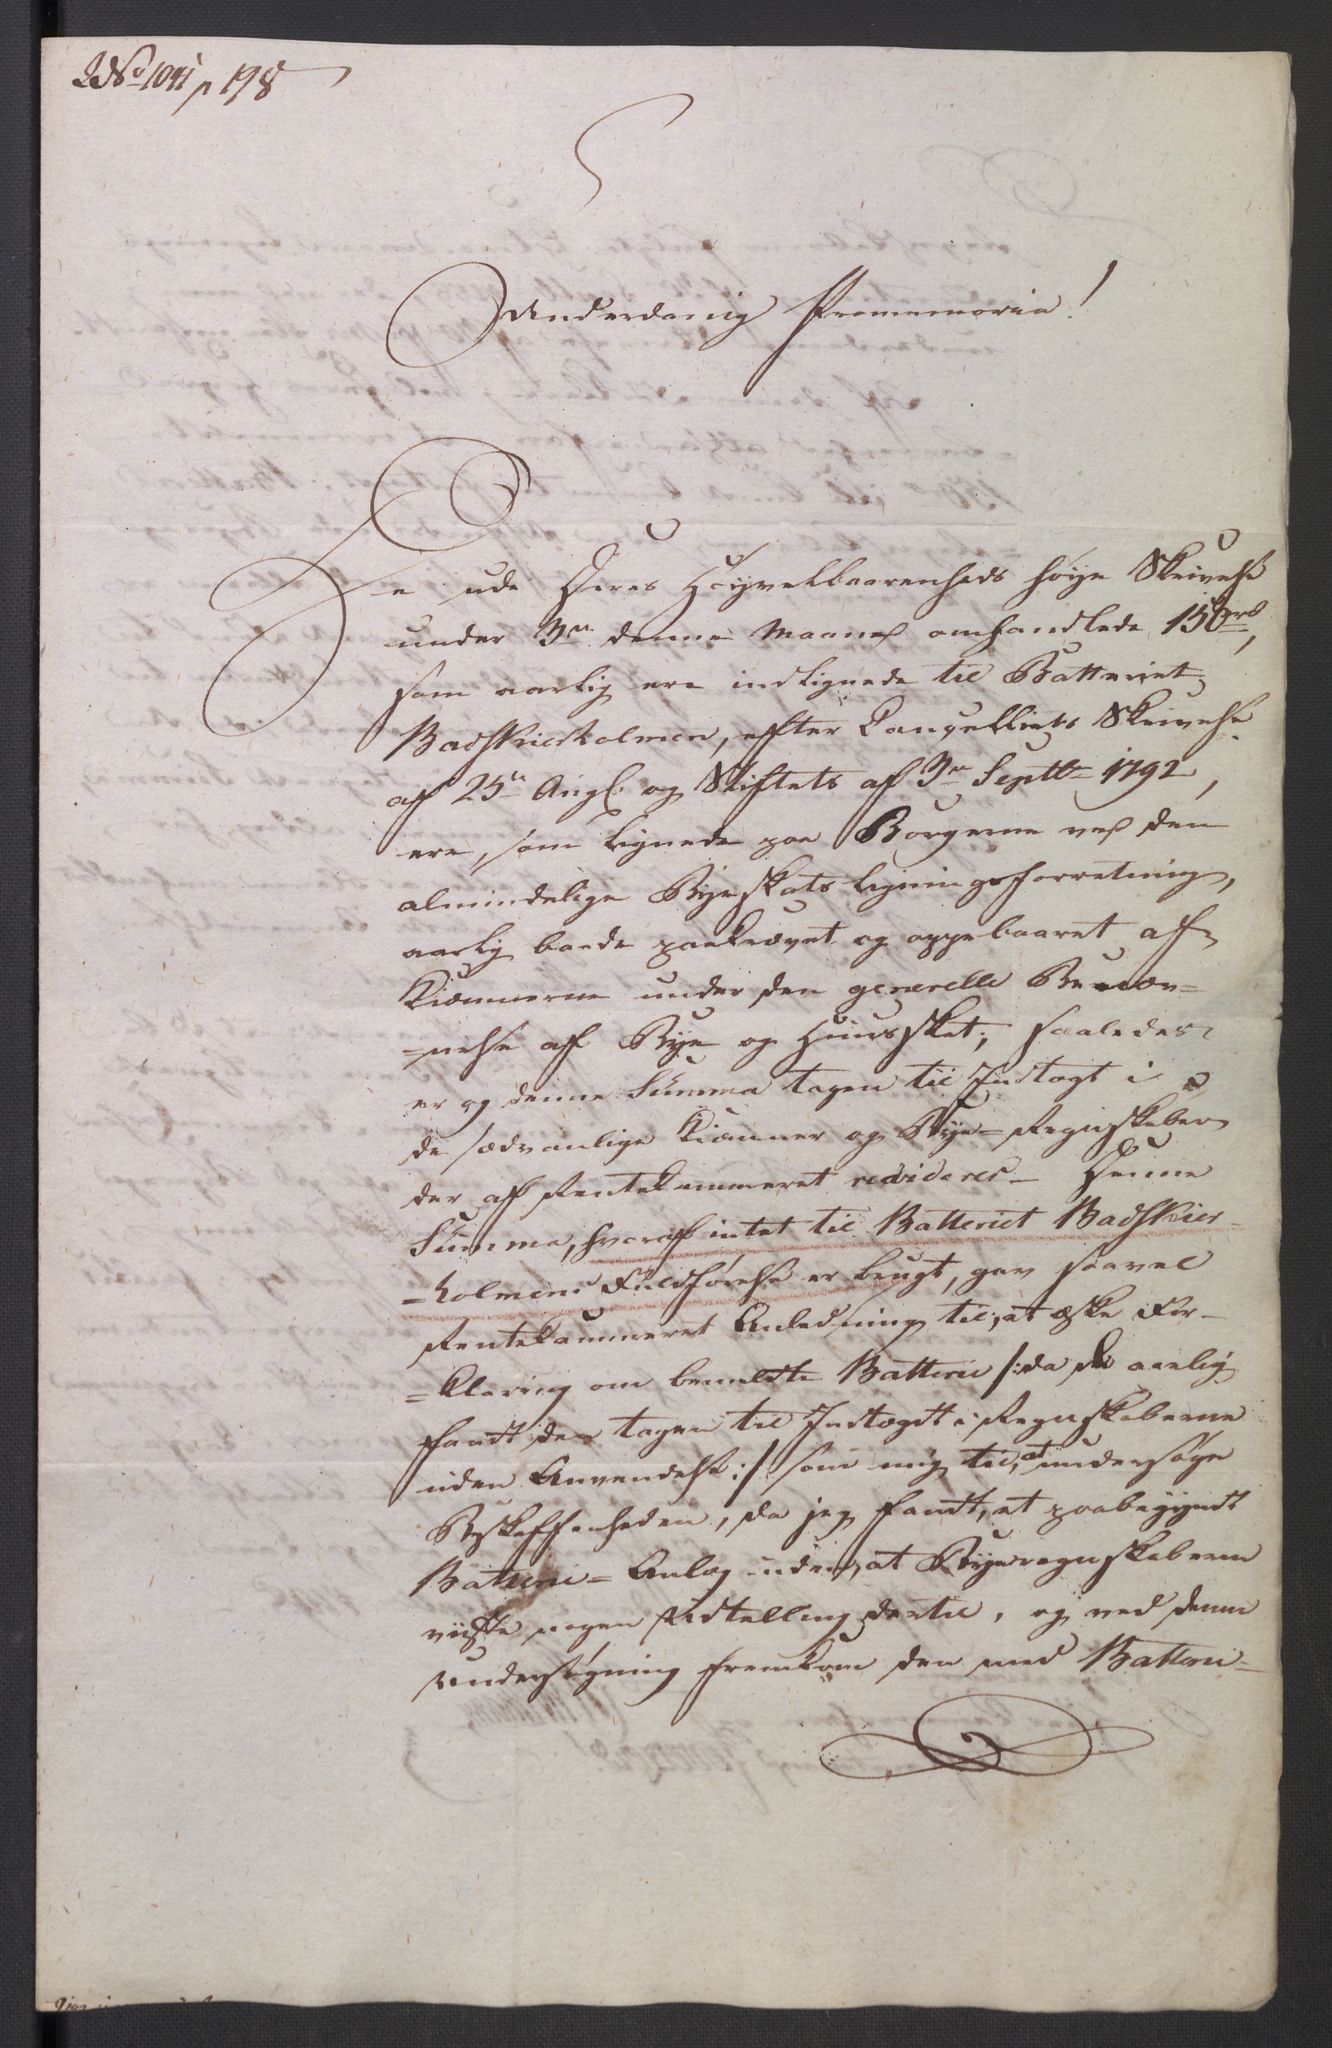 No 1041 p 198
Underdanig Promemoria!
De udi Deres Høyvelbaarenheds høye Skrivelse
under 3de denne Maaned omhandlede 150 rd,
som aarlig ere indlignede til Batteriet
Badskierholmen, efter Cancelliets Skrivelse
af 25de Aug. og Stiftets af 3de Septbr 1792,
ere, som lignede paa Borgerne ved den
almindelige Bye skats ligningsforretning,
aarlig baade paakrævet og oppebaaret af
Kiæmnerne under den generelle Benæv=
=nelse af Bye og Huusskat; saaledes
er og denne Summa tagen til Indtægt i
de sædvanlige Kiæmner og Bye=Regnskaber
der af Rentekammeret revideres — Denne
Summa, hvoraf intet til Batteriet Badskier=
=holmens Fuldførelse er brugt, gav saavel
Rentekammeret Anledning til, at æske For=
=klaring om bemeldte Batterie /: da de aarlig
fandt den tagen til Indtægt i Regnskaberne
uden Anvendelse :/ som mig til, at undersøge
Beskaffenheden, da jeg fandt, et paabegyndt
Batterie=Anlæg uden, at Byeregnskaberne
viiste nogen Udtælling dertil, og ved denne
Undersøgning fremkom den med Batteri=